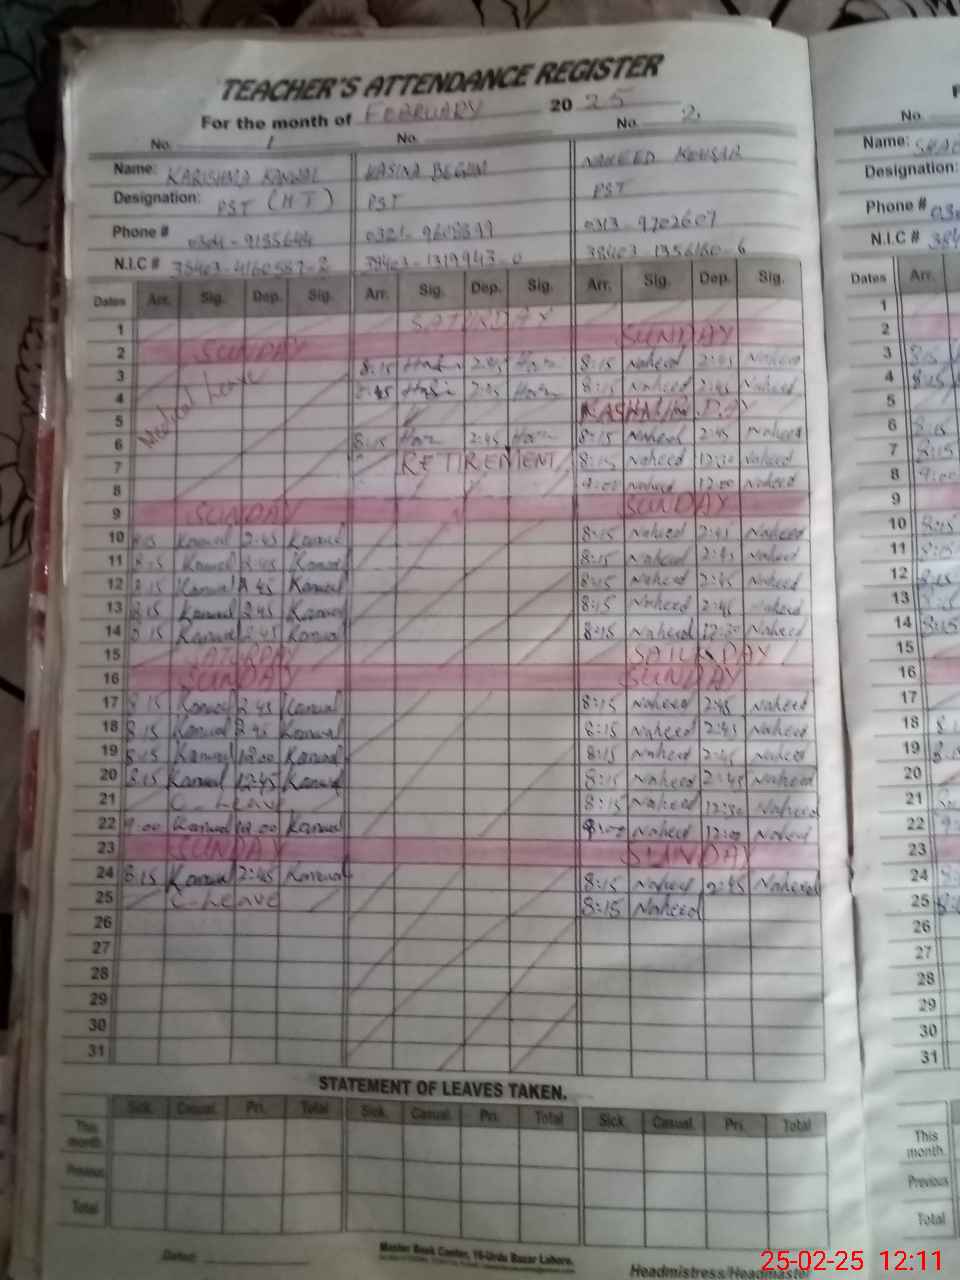 TEACHER'S ATTENDANCE REGISTER
For the month of FEBRUARY 20 25
No. 1 No. No. 2.
Name: KARISHMA KANWAL HASINA BEGUM NAHEED KOUSAR
Designation: PST (HT) PST PST
Phone # 0313-9702607
N.I.C # 38403-1319943-0 38403 1356160-6
Dates Arr. Sig. Dep. Sig. Arr. Sig. Dep. Sig. Arr. Sig. Dep. Sig.
1 SATURDAY
2 SUNDAY SUNDAY
3 Medical Leave 8:15 2:45 8:15 Naheed 2:45 Naheed
4 2:45 8:15 Naheed 2:45 Naheed
5 KASHMIR DAY
6 8:15 2:45 8:15 Naheed 2:45 Naheed
7 RETIREMENT 8:15 Naheed 12:30 Naheed
8 9:00 Naheed 12:00 Naheed
9 SUNDAY SUNDAY
10 8:15 Kanwal 2:45 Kanwal 8:15 Naheed 2:45 Naheed
11 8:15 Kanwal 2:45 Kanwal 8:15 Naheed 2:45 Naheed
12 8:15 Kanwal 2:45 Kanwal 8:15 Naheed 2:45 Naheed
13 8:15 Kanwal 2:45 Kanwal 8:15 Naheed 2:45 Naheed
14 8:15 Kanwal 2:45 Kanwal 8:15 Naheed 12:30 Naheed
15 SATURDAY
16 SUNDAY SUNDAY
17 8:15 Kanwal 2:45 Kanwal 8:15 Naheed 2:45 Naheed
18 8:15 Kanwal 2:45 Kanwal 8:15 Naheed 2:45 Naheed
19 8:15 Kanwal 12:00 Kanwal 8:15 Naheed 2:45 Naheed
20 8:15 Kanwal 12:45 Kanwal 8:15 Naheed 2:45 Naheed
21 C-Leave 8:15 Naheed 12:30 Naheed
22 9:00 Kanwal 12:00 Kanwal 9:00 Naheed 12:00 Naheed
23 SUNDAY SUNDAY
24 8:15 Kanwal 2:45 Kanwal 8:15 Naheed 2:45 Naheed
25 C-Leave 8:15 Naheed
26
27
28
29
30
31
STATEMENT OF LEAVES TAKEN.
Sick. Casual. Pri. Total Sick. Casual. Pri. Total Sick. Casual. Pri. Total
This month.
Previous
Total
Dated:
Master Book Center, 16-Urdu Bazar Lahore.
Headmistress/Headmaster
No.
Name:
Designation:
Phone #
N.I.C #
Dates Arr.
1
2
3 8:15
4 8:15
5
6 8:15
7 8:15
8 9:00
9
10 8:15
11 8:15
12 8:15
13 8:15
14 8:15
15
16
17
18
19
20
21
22
23
24
25
26
27
28
29
30
31
This month.
Previous
Total
25-02-25 12:11